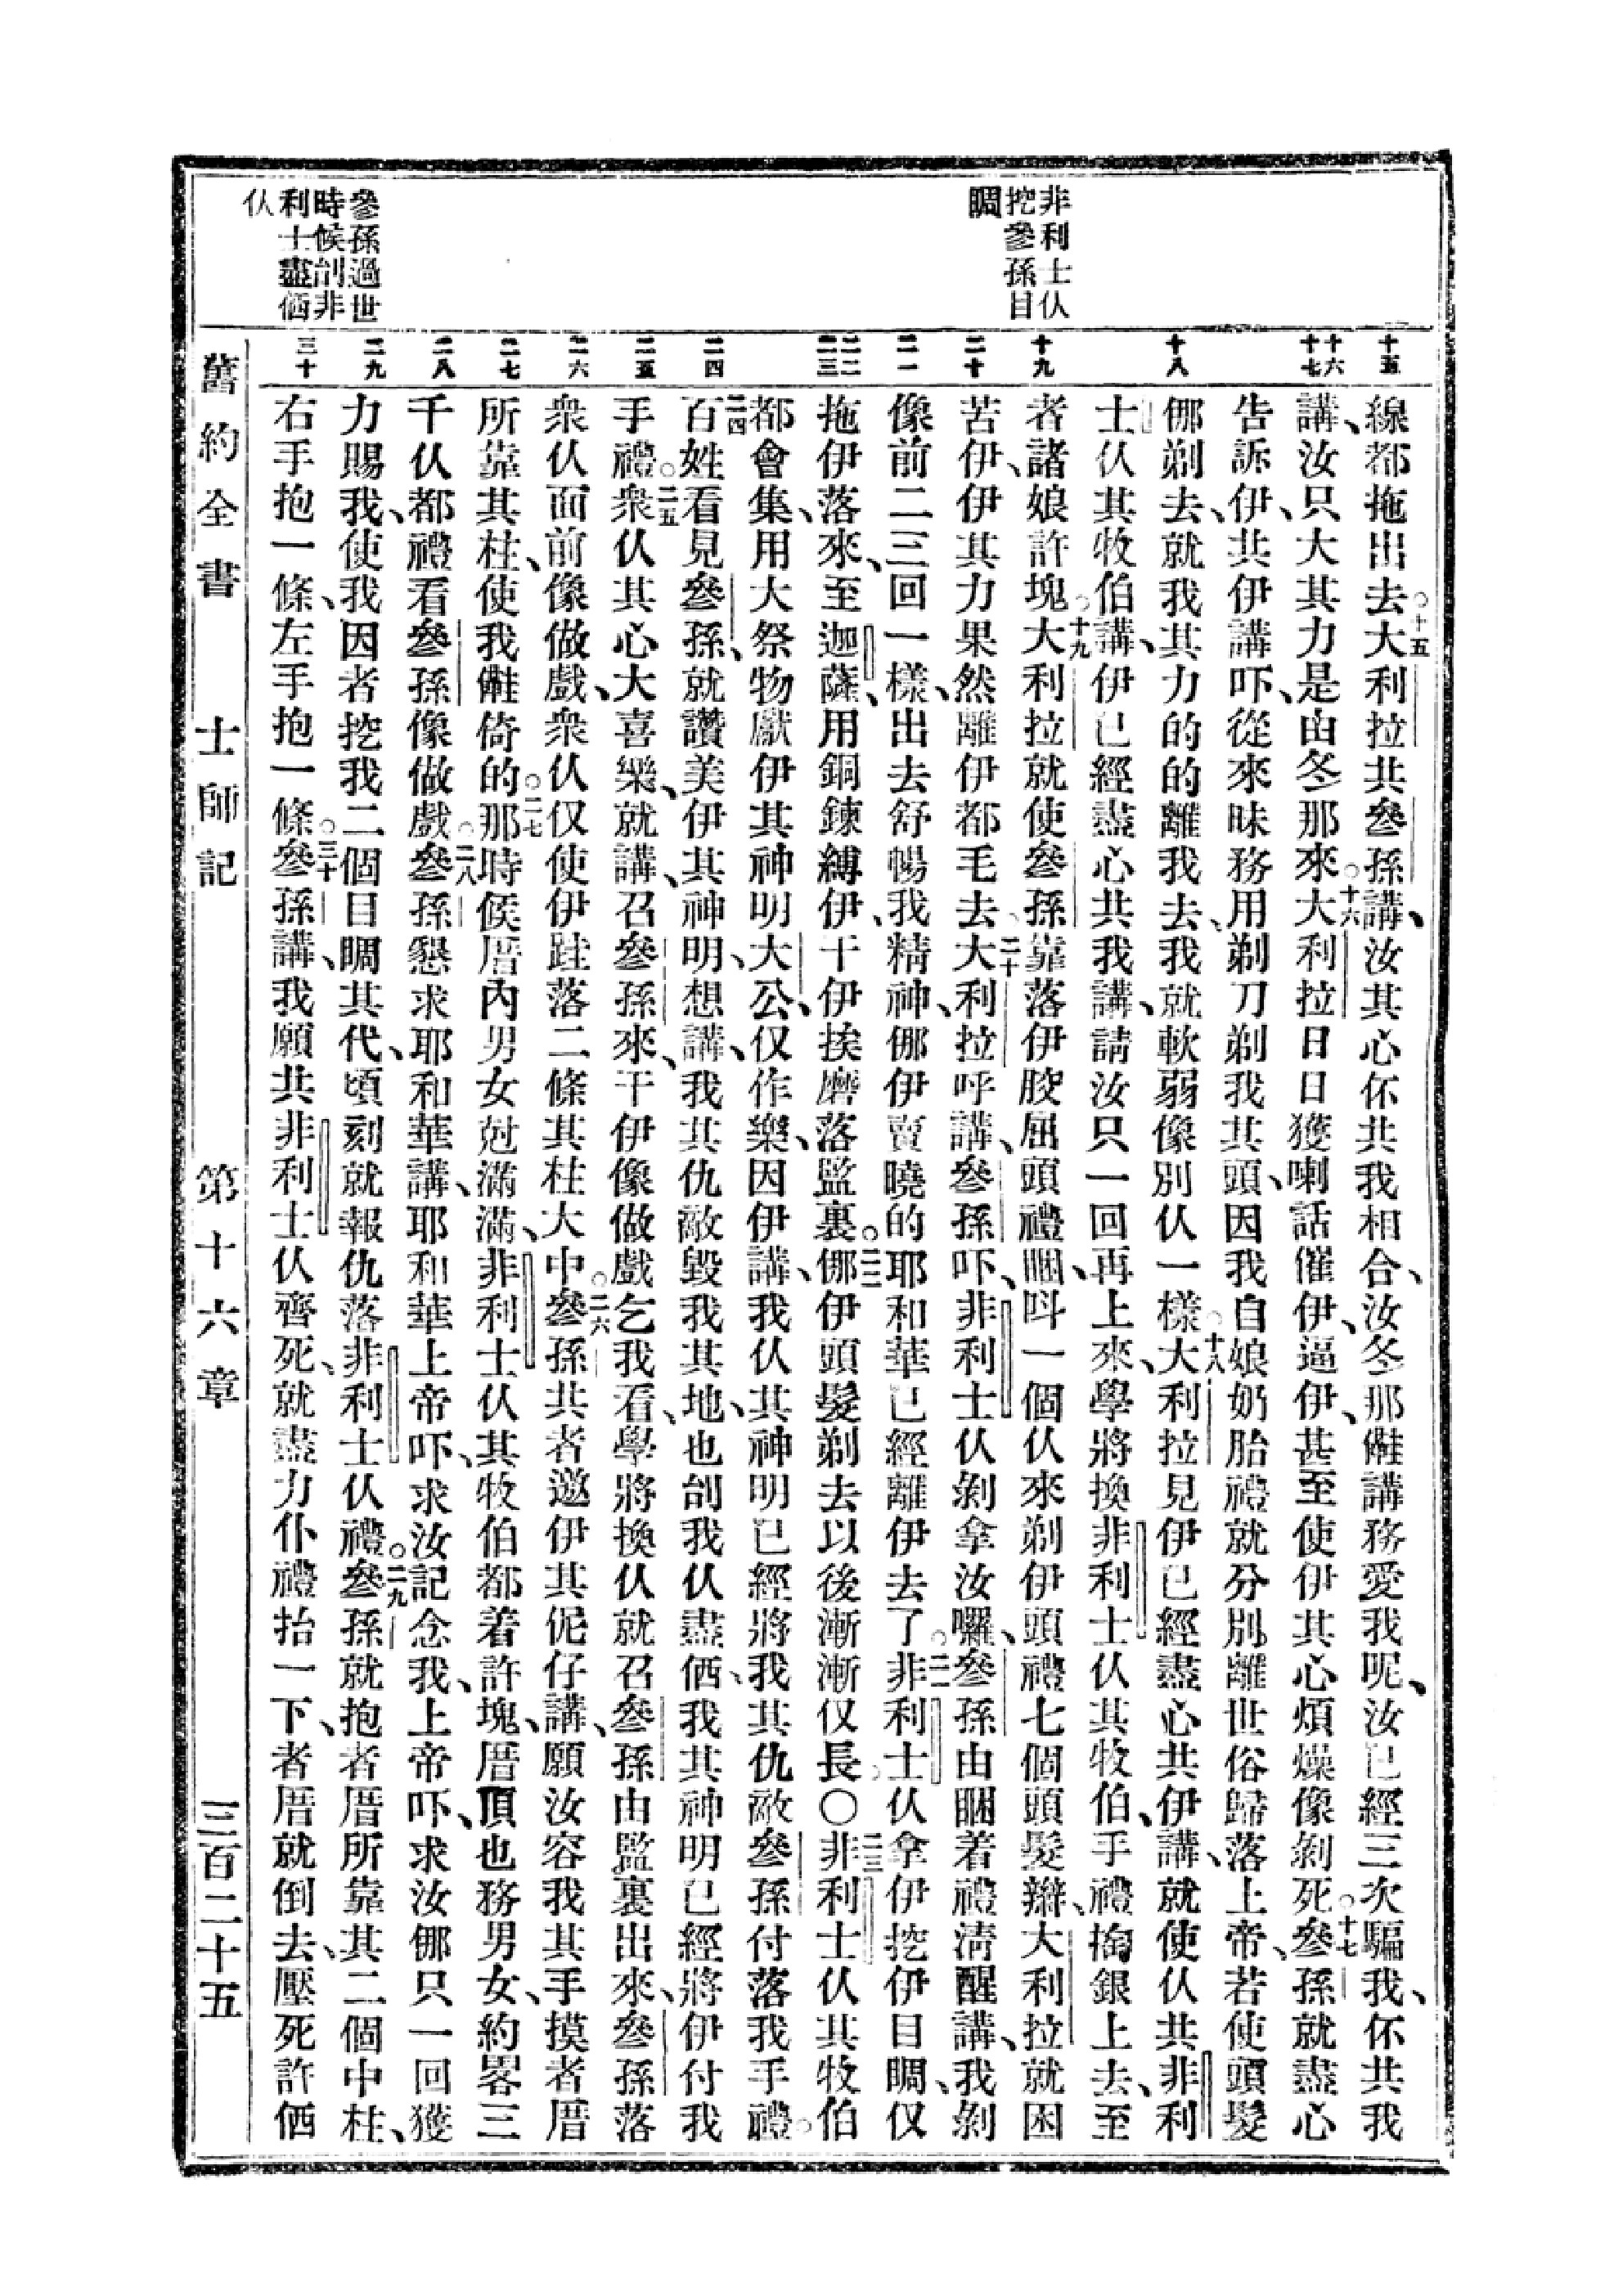 非利士仫
挖參孫目
睭
參孫過世
時候刣非
利士盡価
仫
十五
十六
十七
十八
十九
二十
二一
二二
二三
二四
二五
二六
二七
二八
二九
三十
線都拖出去。十五大利拉共參孫講、汝其心伓共我相合、汝冬那講務愛我呢、汝已經三次騙我、伓共我
講、汝只大其力是由冬那來。十六大利拉日日獲喇話催伊、逼伊、甚至使伊其心煩燥像剝死。十七參孫就盡心
告訴伊、共伊講吓、從來昧務用剃刀剃我其頭、因我自娘奶胎禮就分別離世俗歸落上帝、若使頭髮
伽剃去、就我其力的的離我去、我就軟弱像別仫一樣。十八大利拉見伊已經盡心共伊講、就使仫共非利
士仫其牧伯講、伊已經盡心共我講、請汝只一回再上來、學將換非利士仫其牧伯、手禮搊銀上去、至
者諸娘許塊。十九大利拉就使參孫靠落伊骹屈頭禮睏、呌一個仫來剃伊頭禮七個頭髮辮、大利拉就困
苦伊、伊其力果然離伊都毛去。二十大利拉呼講、參孫吓、非利士仫剝拿汝囉、參孫由睏着禮淸醒講、我剝
像前二三回一樣、出去舒暢我精神、伽伊賣曉的耶和華已經離伊去了。二一非利士仫拿伊挖伊目睭、仅
拖伊落來、至迦薩、用銅鍊縛伊、干伊挨磨落監裏。二二伽伊頭髮剃去以後漸漸仅長。〇二三非利士仫其牧伯
都會集、用大祭物獻伊其神明大公、仅作樂、因伊講、我仫其神明已經將我其仇敵參孫付落我手禮。
二四百姓看見參孫、就讚美伊其神明、想講、我其仇敵毀我其地、也刣我仫盡価、我其神明已經將伊付我
手禮。二五衆仫其心大喜樂、就講、召參孫來、干伊像做戲乞我看、學將換仫就召參孫由監裏出來、參孫落
衆仫面前像做戲、衆仫仅使伊跬落二條其柱大中。二六參孫共者邀伊其伲仔講、願汝容我其手摸者厝
所靠其柱、使我倚的。二七那時候厝內男女尅滿滿、非利士仫其牧伯都着許塊、厝頂也務男女、約畧三
千仫都禮看參孫像做戲。二八參孫懇求耶和華講、耶和華上帝吓、求汝記念我、上帝吓、求汝伽只一回獲
力賜我、使我因者挖我二個目睭其代、頃刻就報仇落非利士仫禮。二九參孫就抱者厝所靠其二個中柱、
右手抱一條、左手抱一條。三十參孫講、我願共非利士仫齊死、就盡力仆禮抬一下、者厝就倒去、壓死許価
舊約全書　士師記　第十六章　三百二十五